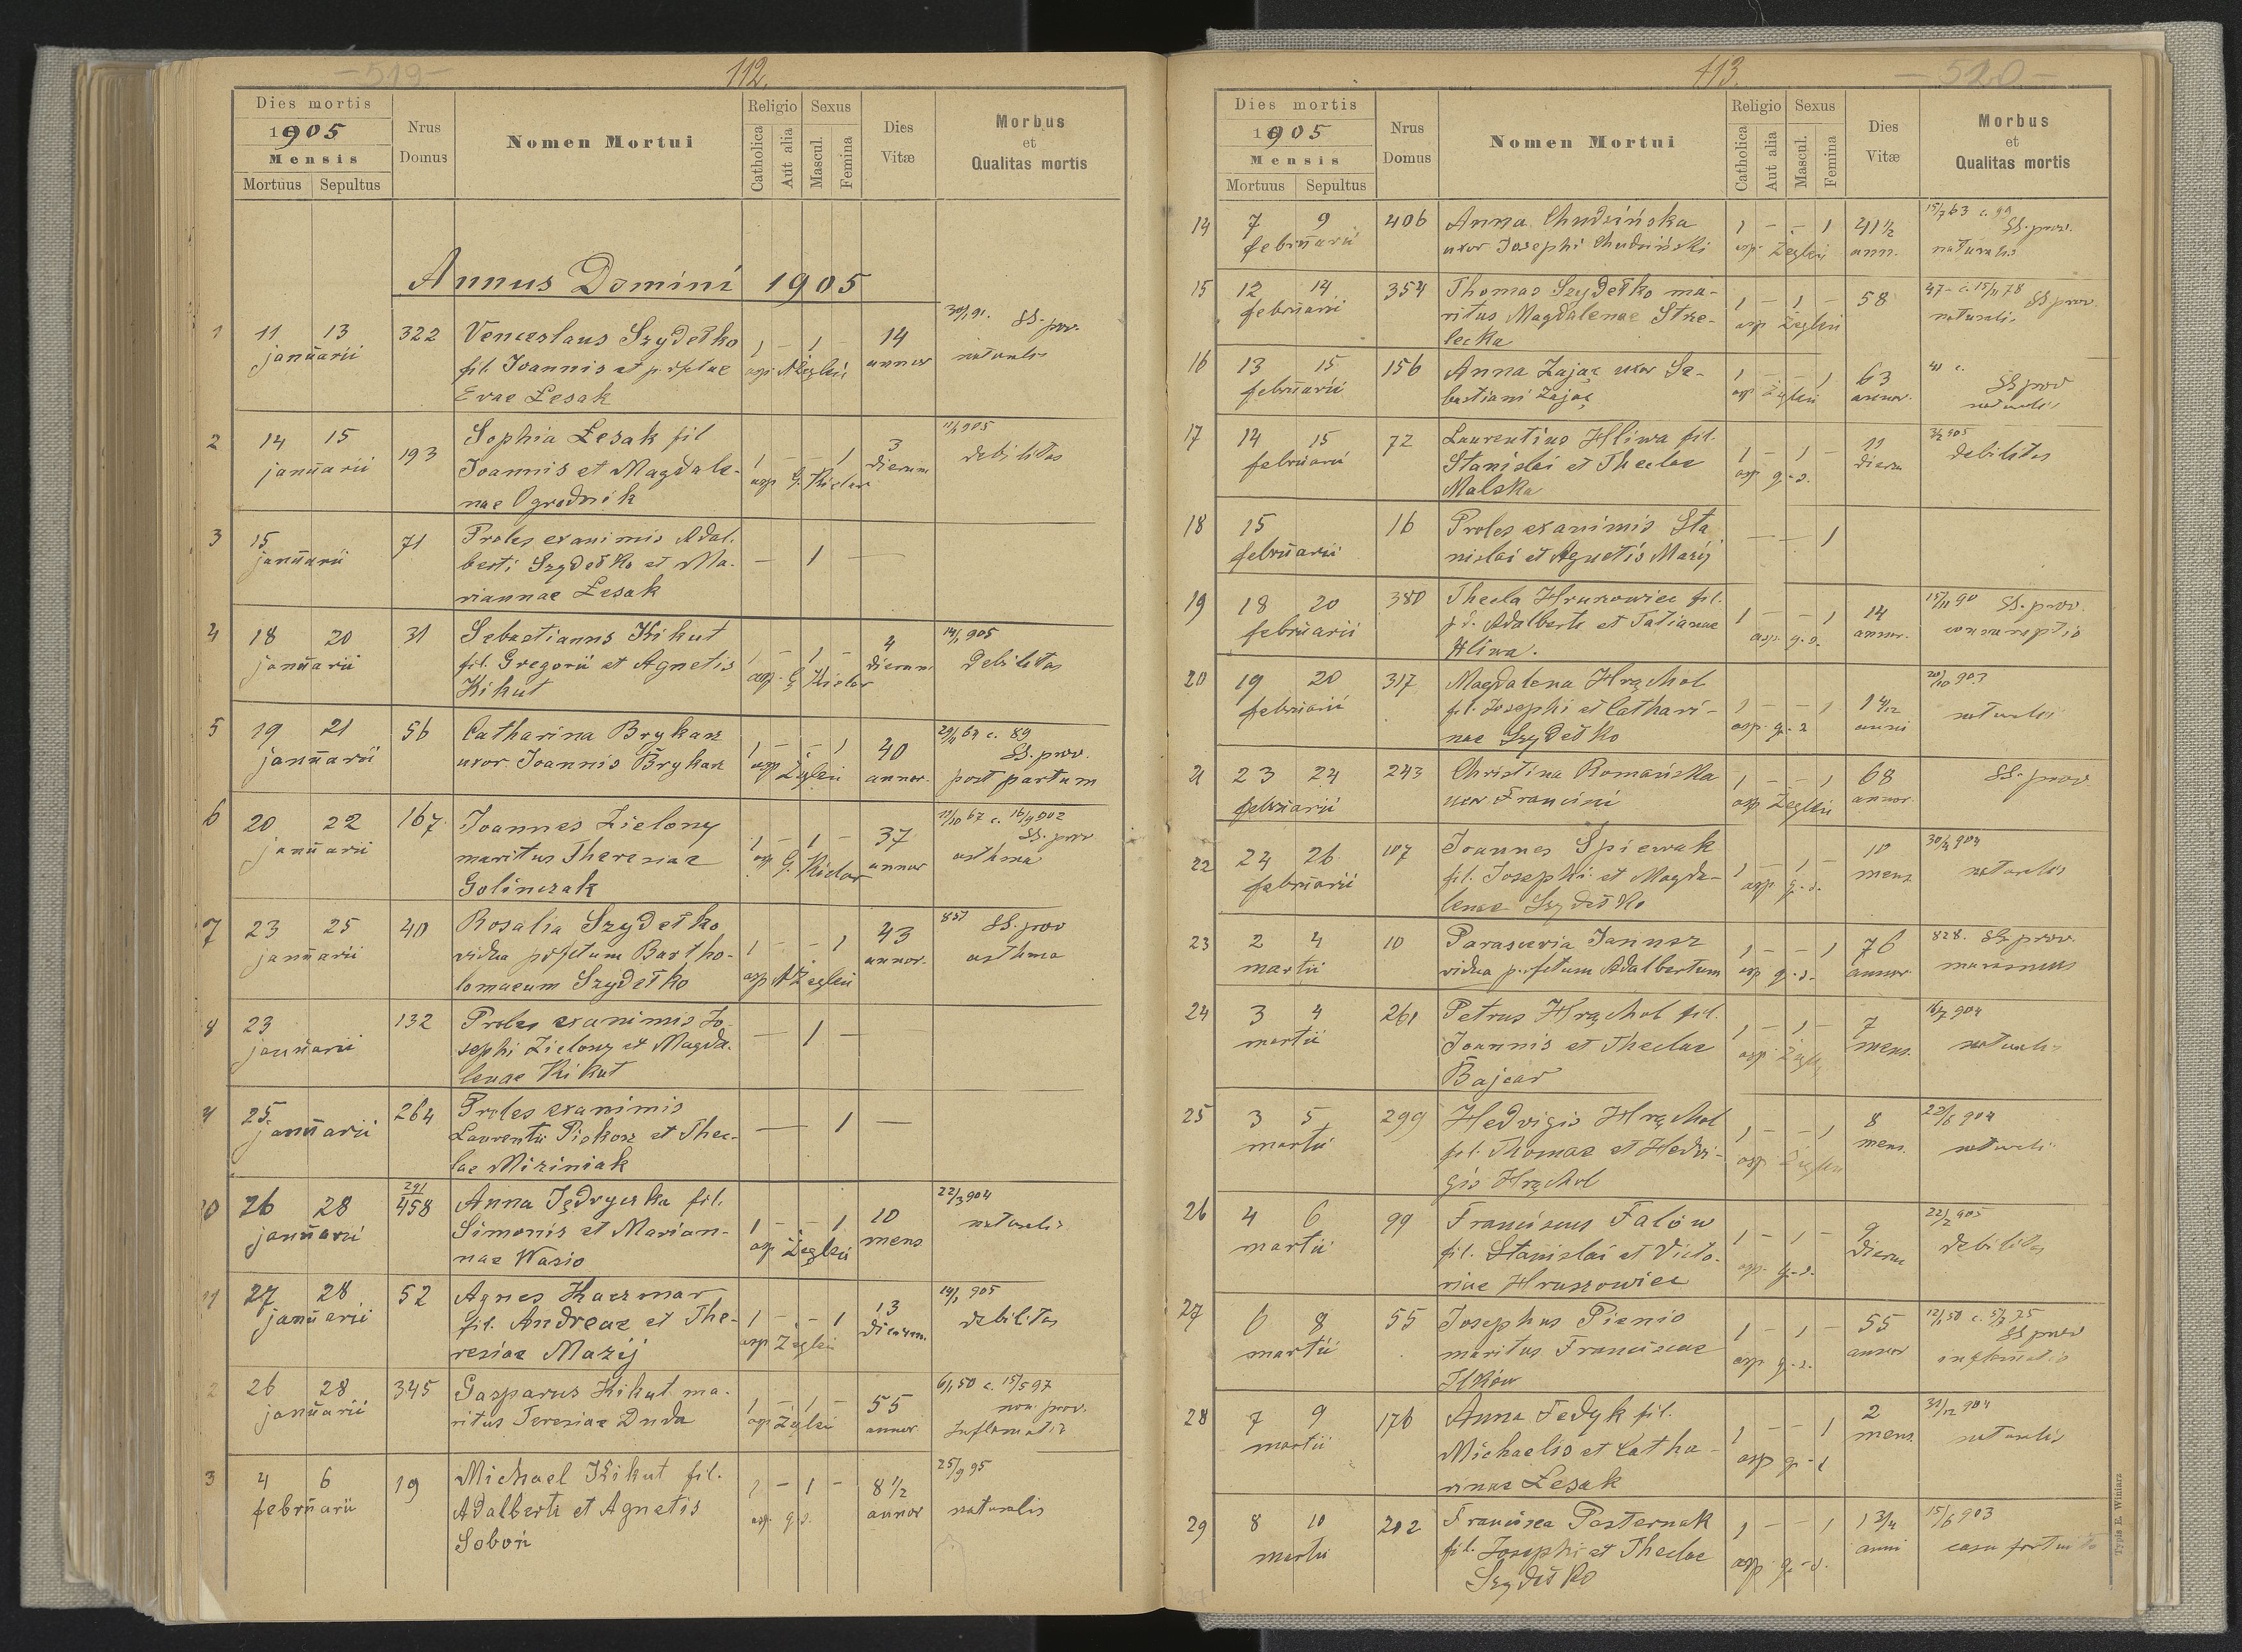 - 519 -
112.
Dies mortis
1905
Mensis
Mortuus Sepultus
Nrus Domus
Nomen Mortui
Religio
Catholica
Aut alia
Sexus
Mascul.
Femina
Dies Vitæ
Morbus
et
Qualitas mortis
Annus Domini 1905
1 11 13 322 Venceslaus Szydełko 1 - 1 - 14 30/1 91. SS. prov.
januarii fil. Joannis et p. dfctae annor naturalis
Evae Lesak
2 14 15 193 Sophia Lesak fil 1 - - 1 3 11/1 905
januarii Joannis et Magdale- asp G. Kielar dierum debilitas
nae Ogrodnik
3 15 71 Proles exanimis Adal. - 1 -
januarii berti Szydełko et Ma-
riannae Lesak
4 18 20 31 Sebastianus Kikut 1 - 1 - 4 14/1 905
januarii fil. Gregorii et Agnetis asp. G Kielar dierum debilitas
Kikut
5 19 21 56 Catharina Brykacz 1 - - 1 40 c. 89
SS. prov.
januarii uxor Joannis Brykacz asp Żegleń annor. post partum
6 20 22 167 Joannes Zielony 1 - 1 - 37 11/10 67 c. 902
SS. prov
januarii maritus Theresiae asp G. Kielar annor asthma
Golinczak
7 23 25 40 Rosalia Szydełko 1 - - 1 43 SS. prov
januarii vidua p dfctum Bartho- asp A Żegleń annor. asthma
lomaeum Szydełko
8 23 132 Proles exanimis Jo- - 1 -
januarii sephi Zielony et Magda-
lenae Kikut
9 25 264 Proles exanimis - 1 -
januarii Laurentii Piekosz et Thec-
lae Miziniak
10 26 28 291/458 Anna Jędryczka fil. 1 - - 1 10 22/3 904
januarii Simonis et Marian- asp Żegleń mens naturalis
nae Wasio
11 27 28 52 Agnes Kaczmar 1 - - 1 13 14/1 905
januarii fil. Andreae et The- asp Żegleń dierum. debilitas
resiae Mazij
12 26 28 345 Gasparus Kikut ma- 1 - 1 - 55 6/1 50 c. 15/5 97
non prov.
januarii ritus Teresiae Duda asp Żegleń annor Inflamatio
13 4 6 19 Michael Kikut fil. 1 - 1 - 8 1/2 25/9 95
februarii Adalberti et Agnetis asp. g. s. annor naturalis
Soboń
113.
- 520 -
Dies mortis
1905
Mensis
Mortuus Sepultus
Nrus Domus
Nomen Mortui
Religio
Catholica
Aut alia
Sexus
Mascul.
Femina
Dies Vitæ
Morbus
et
Qualitas mortis
14 7 9 406 Anna Chudzińska 1 - - 1 41 1/2 63 c. 99
SS. prov.
februarii uxor Josephi Chudziński asp. Żegleń ann. naturalis
15 12 14 354 Thomas Szydełko ma- 1 - 1 - 58 47 - c. 15/11 78 SS prov.
februarii ritus Magdalenae Strze- asp Żegleń naturalis
lecka
16 13 15 156 Anna Zając uxor Se- 1 - - 1 63 SS prov
februarii bastiani Zając asp Żegleń annor. naturalis
17 14 15 72 Laurentius Hliwa fil. 1 - 1 - 11 3/2 905
februarii Stanislai et Theclae asp g. s. dierum debilitas
Malska
18 15 16 Proles exanimis Sta - - 1
februarii nislai et Agnetis Mazij
19 18 20 380 Thecla Hruszowiec fil. 1 - - 1 14 15/11 90 SS. prov.
februarii p d. Adalberti et Tatianae asp. g. s. annor. consumptio
Hliwa.
20 19 20 317 Magdalena Hrąchol 1 - - 1 1 4/12 20/10 903
februarii fil. Josephi et Cathari- asp. g. s anni naturalis
nae Szydełko
21 23 24 243 Christina Romańska 1 - - 1 68 SS. prov.
februarii uxor Francisci asp Żegleń annor.
22 24 26 107 Joannes Śpiewak 1 - 1 - 10 904
februarii fil. Josephi et Magda- asp g. s. mens. naturalis
lenae Szydełko
23 2 4 10 Parascevia Janusz 1 - - 1 76 828. SS. prov.
martii vidua p. dfctum Adalbertum asp g. s. annor. marasmus
24 3 4 261 Petrus Hrąchol fil. 1 - 1 - 7 16/7 904
martii Joannis et Theclae asp. Żegleń mens. naturalis
Bajcar
25 3 5 299 Hedvigis Hrąchol 1 - - 1 8 22/6 904
martii fil. Thomae et Hedvi- asp Żegleń mens. naturalis
gis Hrąchol
26 4 6 99 Franciscus Falów 1 - 1 - 9 22/2 905
martii fil. Stanislai et Victo- asp. g. s. dierum debilitas
riae Hruszowiec
27 6 8 55 Josephus Pienio 1 - 1 - 55 12/1 50 c. 75
SS prov
martii maritus Franciscae asp g. s. annor inflamatio
Ilków
28 7 9 176 Anna Fedyk fil. 1 - - 1 2 31/12 904
martii Michaelis et Catha- asp g. s mens. naturalis
rinae Lesak
29 8 10 202 Francisca Pasternak 1 - - 1 1 3/4 15/6 903
martii fil. Josephi et Theclae asp g. s. anni casu fortuito
Szydełko
Typis E. Winiarz